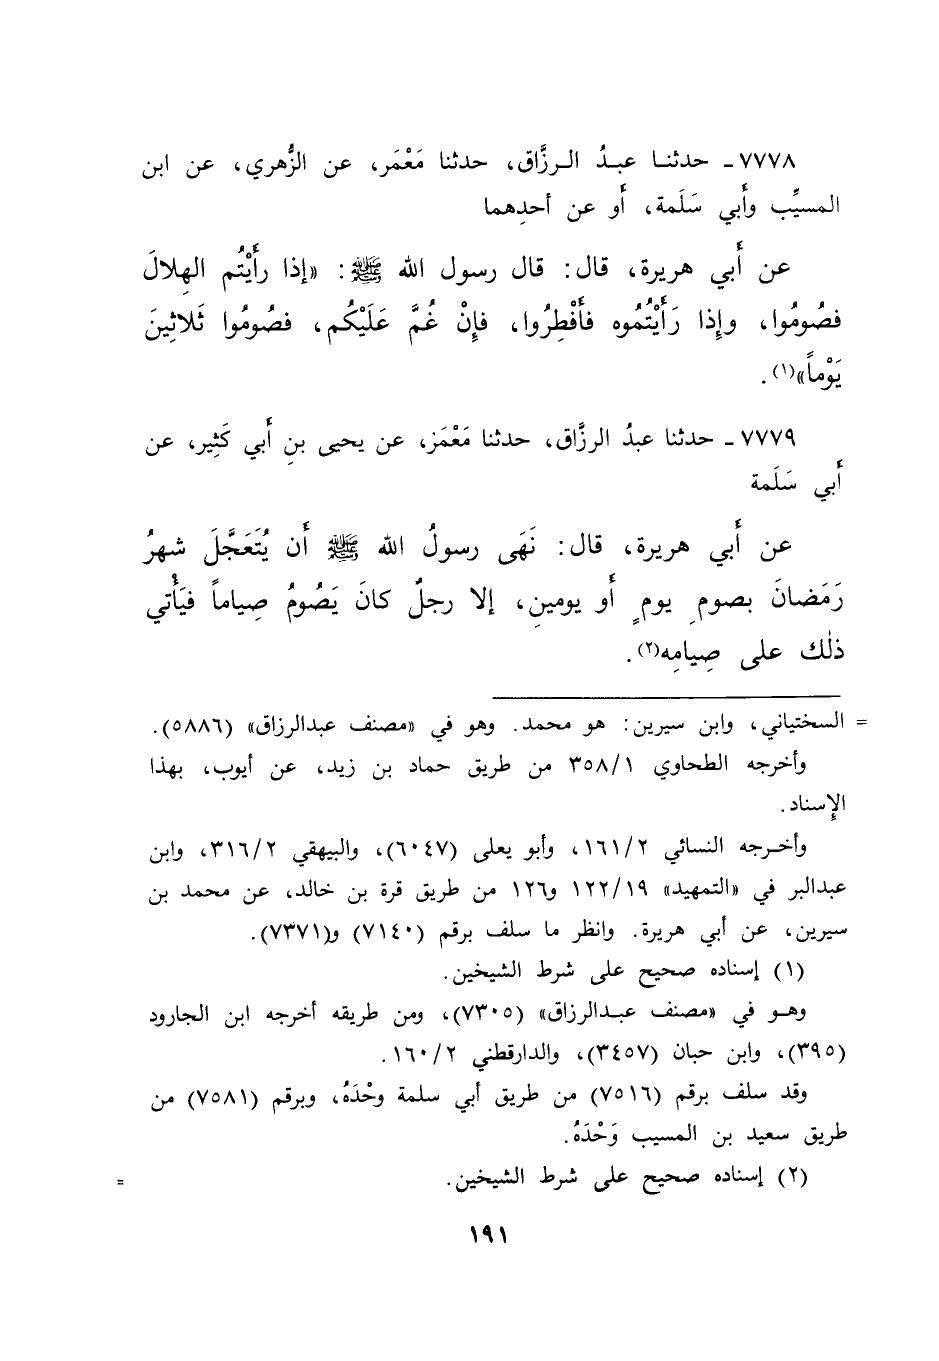 ٧٧٧٨ - حدثنا عبدُ الرزَّاق، حدثنا مَعْمَر، عن الزُّهري، عن ابن
المسيِّب وأَبي سَلَمة، أَو عن أحدِهما
عن أَبي هريرة، قال: قال رسول الله ﷺ: «إذا رأَيْتُم الهِلالَ
فصُومُوا، وإِذا رَأَيْتُمُوه فأَفْطِرُوا، فإِنْ غُمَّ عَلَيْكُم، فصُومُوا ثَلاثِينَ
يَوْماً»(١).
٧٧٧٩ - حدثنا عبدُ الرزَّاق، حدثنا مَعْمَر، عن يحيى بنِ أَبي كَثِير، عن
أَبي سَلَمة
عن أَبي هريرة، قال: نَهَى رسولُ الله ﷺ أَن يُتَعَجَّلَ شهرُ
رَمَضانَ بصومِ يومٍ أَو يومينِ، إلا رجلٌ كانَ يَصُومُ صِياماً فيَأْتي
ذٰلك على صِيامِه(٢).
= السختياني، وابن سيرين: هو محمد. وهو في «مصنف عبدالرزاق» (٥٨٨٦).
وأخرجه الطحاوي ٣٥٨/١ من طريق حماد بن زيد، عن أيوب، بهذا
الإسناد.
وأخرجه النسائي ١٦١/٢، وأبو يعلى (٦٠٤٧)، والبيهقي ٣١٦/٢، وابن
عبدالبر في «التمهيد» ١٢٢/١٩ و١٢٦ من طريق قرة بن خالد، عن محمد بن
سيرين، عن أبي هريرة. وانظر ما سلف برقم (٧١٤٠) و(٧٣٧١).
(١) إسناده صحيح على شرط الشيخين.
وهو في «مصنف عبدالرزاق» (٧٣٠٥)، ومن طريقه أخرجه ابن الجارود
(٣٩٥)، وابن حبان (٣٤٥٧)، والدارقطني ١٦٠/٢.
وقد سلف برقم (٧٥١٦) من طريق أبي سلمة وحْدَهُ، وبرقم (٧٥٨١) من
طريق سعيد بن المسيب وَحْدَهُ.
(٢) إسناده صحيح على شرط الشيخين. =
١٩١